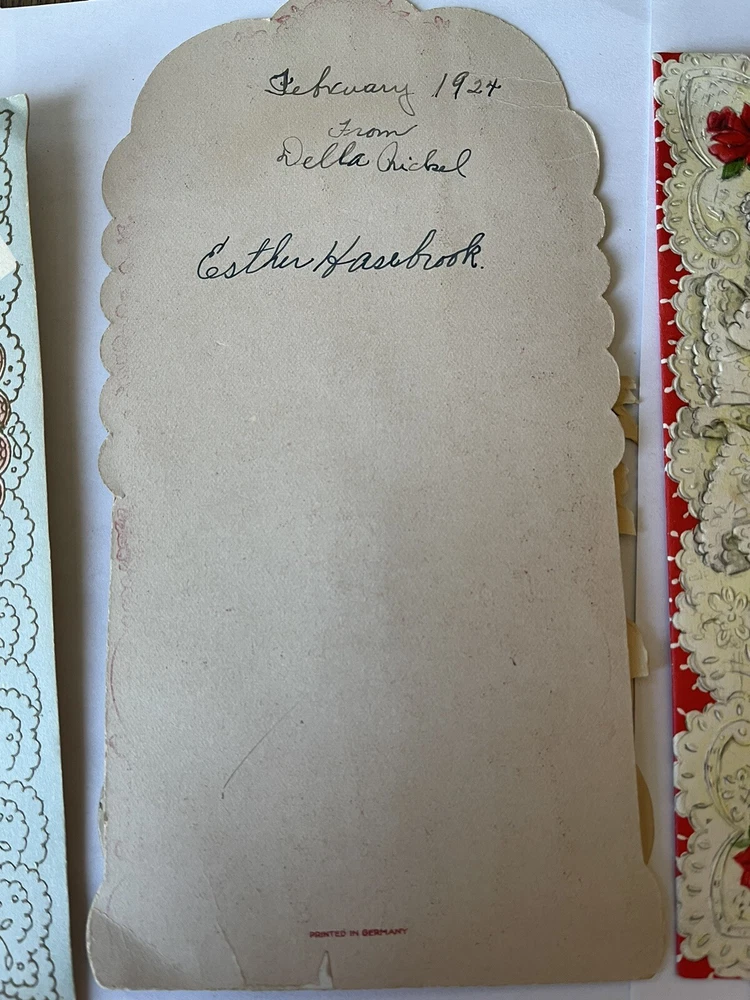 February 1924
From
Della Nickel
Esther Hasebrook.
PRINTED IN GERMANY